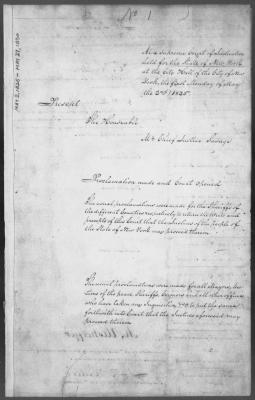 No 1
At a Supreme Court of Judicature
held for the State of New York
at the City Hall of the City of New
York, the first Monday of May
the 2nd 1825.
Present
The Honorable
Mr Chief Justice Savage
Proclamation made and Court opened
The usual proclamations were made for the Sheriffs of
the different Counties respectively to return the Writs and
precepts of this Court that the Justices of the people of
the State of New York may proceed thereon
The usual proclamations were made for all Mayors,
of the peace Sheriffs, Coroners and all other officers
who have taken any Inquisition &c to put the same
forthwith into Court that the Justices aforesaid may
proceed thereon